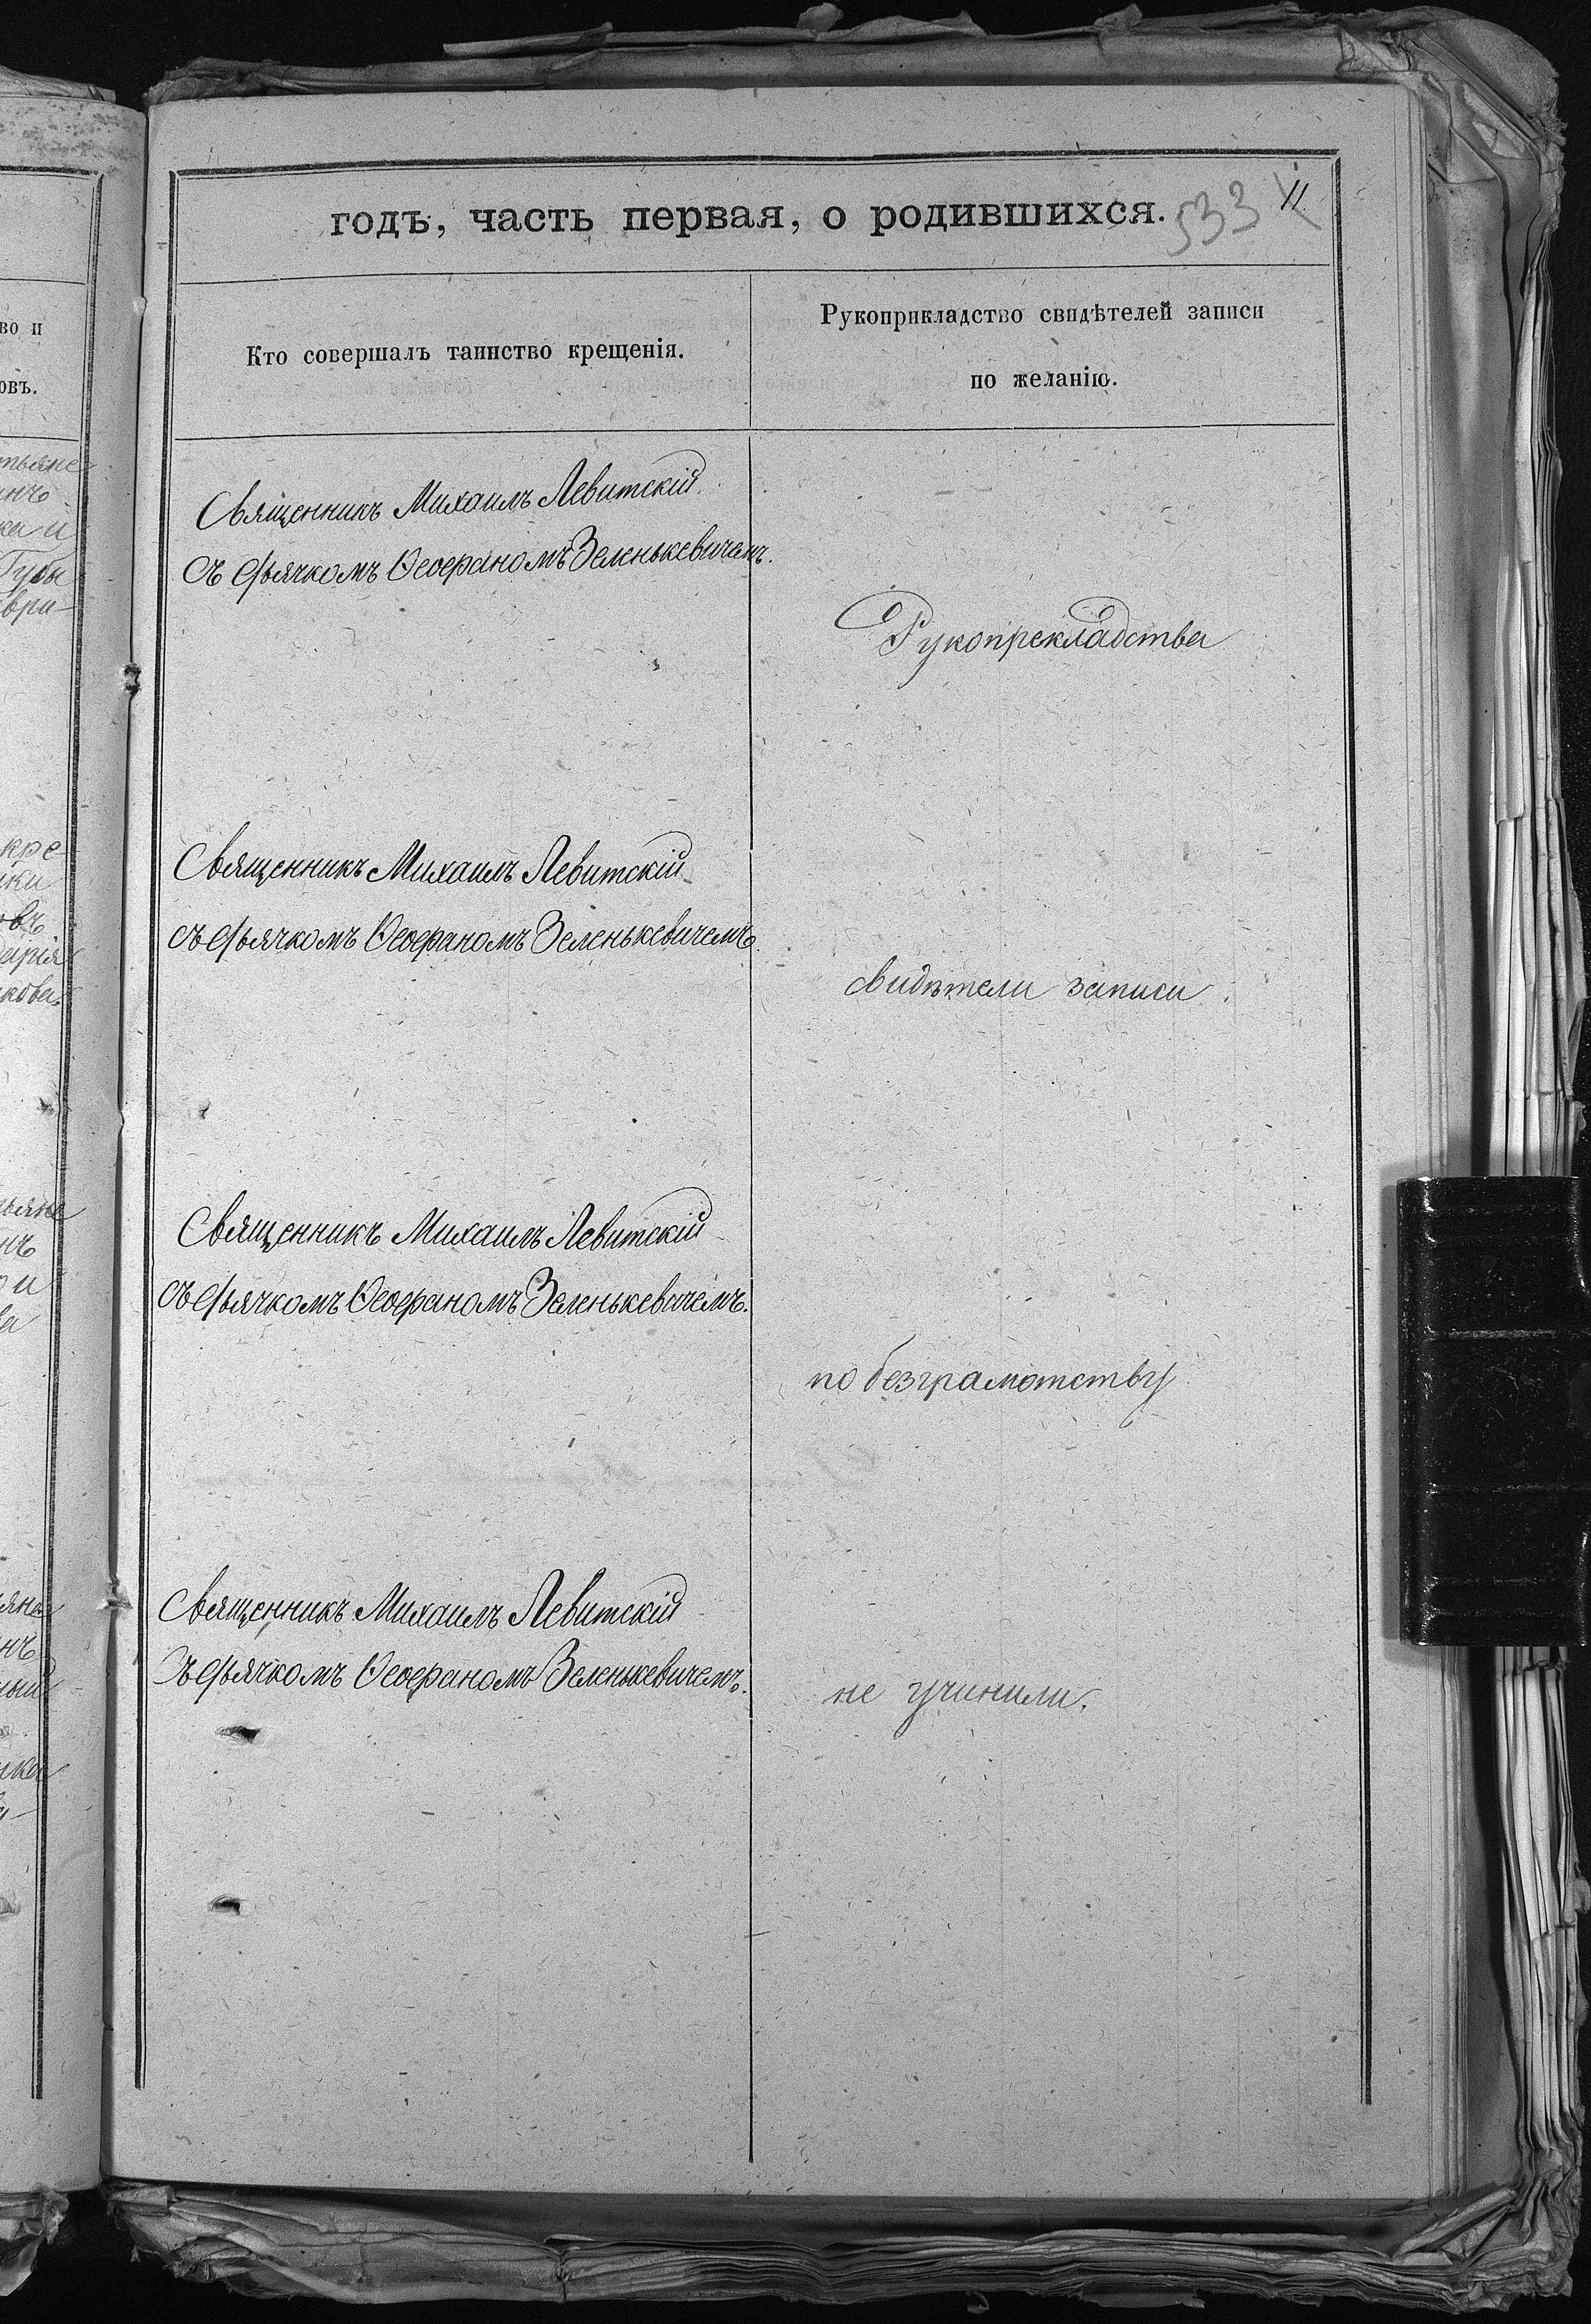 годъ, часть первая, о родившихся.
533
11
Кто совершалъ таинство крещенія.
Рукоприкладство свидѣтелей записи
по желанію.
Священникъ Михаилъ Левитскій
съ дьячкомъ Ѳеофаномъ Зеленькевичемъ.
Рукопрекладства
Священникъ Михаилъ Левитскій
съ дьячкомъ Ѳеофаномъ Зеленькевичемъ.
свидѣтели записи
Священникъ Михаилъ Левитскій
съ дьячкомъ Ѳеофаномъ Зеленькевичемъ.
по безграмотству
Священникъ Михаилъ Левитскій
съ дьячкомъ Ѳеофаномъ Зеленькевичемъ.
не учинили.